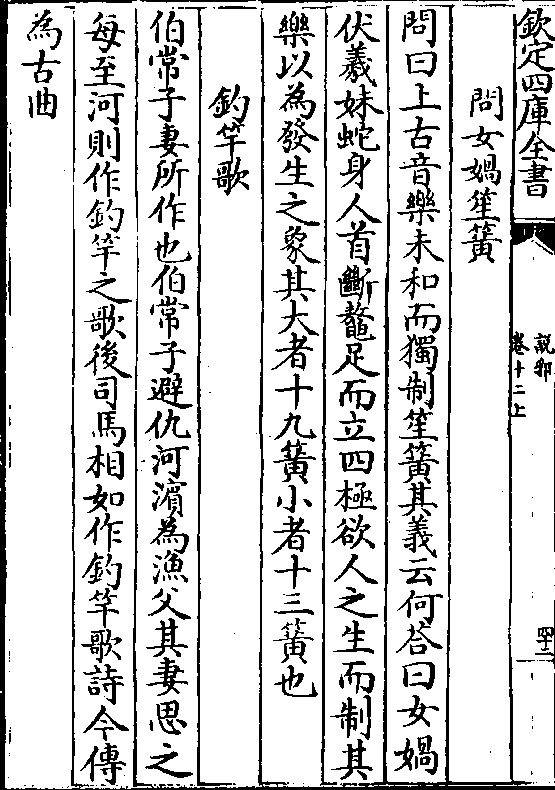 欽定四庫全書
說郛
卷十二上
四十二
問女媧笙簧
問曰上古音樂未和而獨制笙簧其義云何荅曰女媧
伏羲妹蛇身人首斷鼇足而立四極欲人之生而制其
樂以為發生之象其大者十九簧小者十三簧也
釣竿歌
伯常子妻所作也伯常子避仇河濱為漁父其妻思之
每至河則作釣竿之歌後司馬相如作釣竿歌詩今傳
為古曲